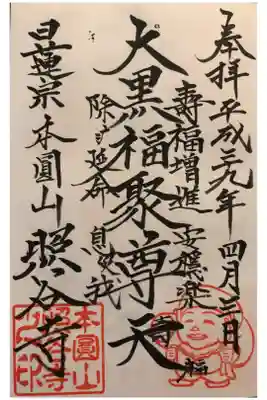 奉拝 平成二九年 四月三日
壽福増進 安穏楽
大黒福聚尊天
除 延命 息災
日蓮宗 本圓山 照谷寺
本圓山
照谷寺
之印